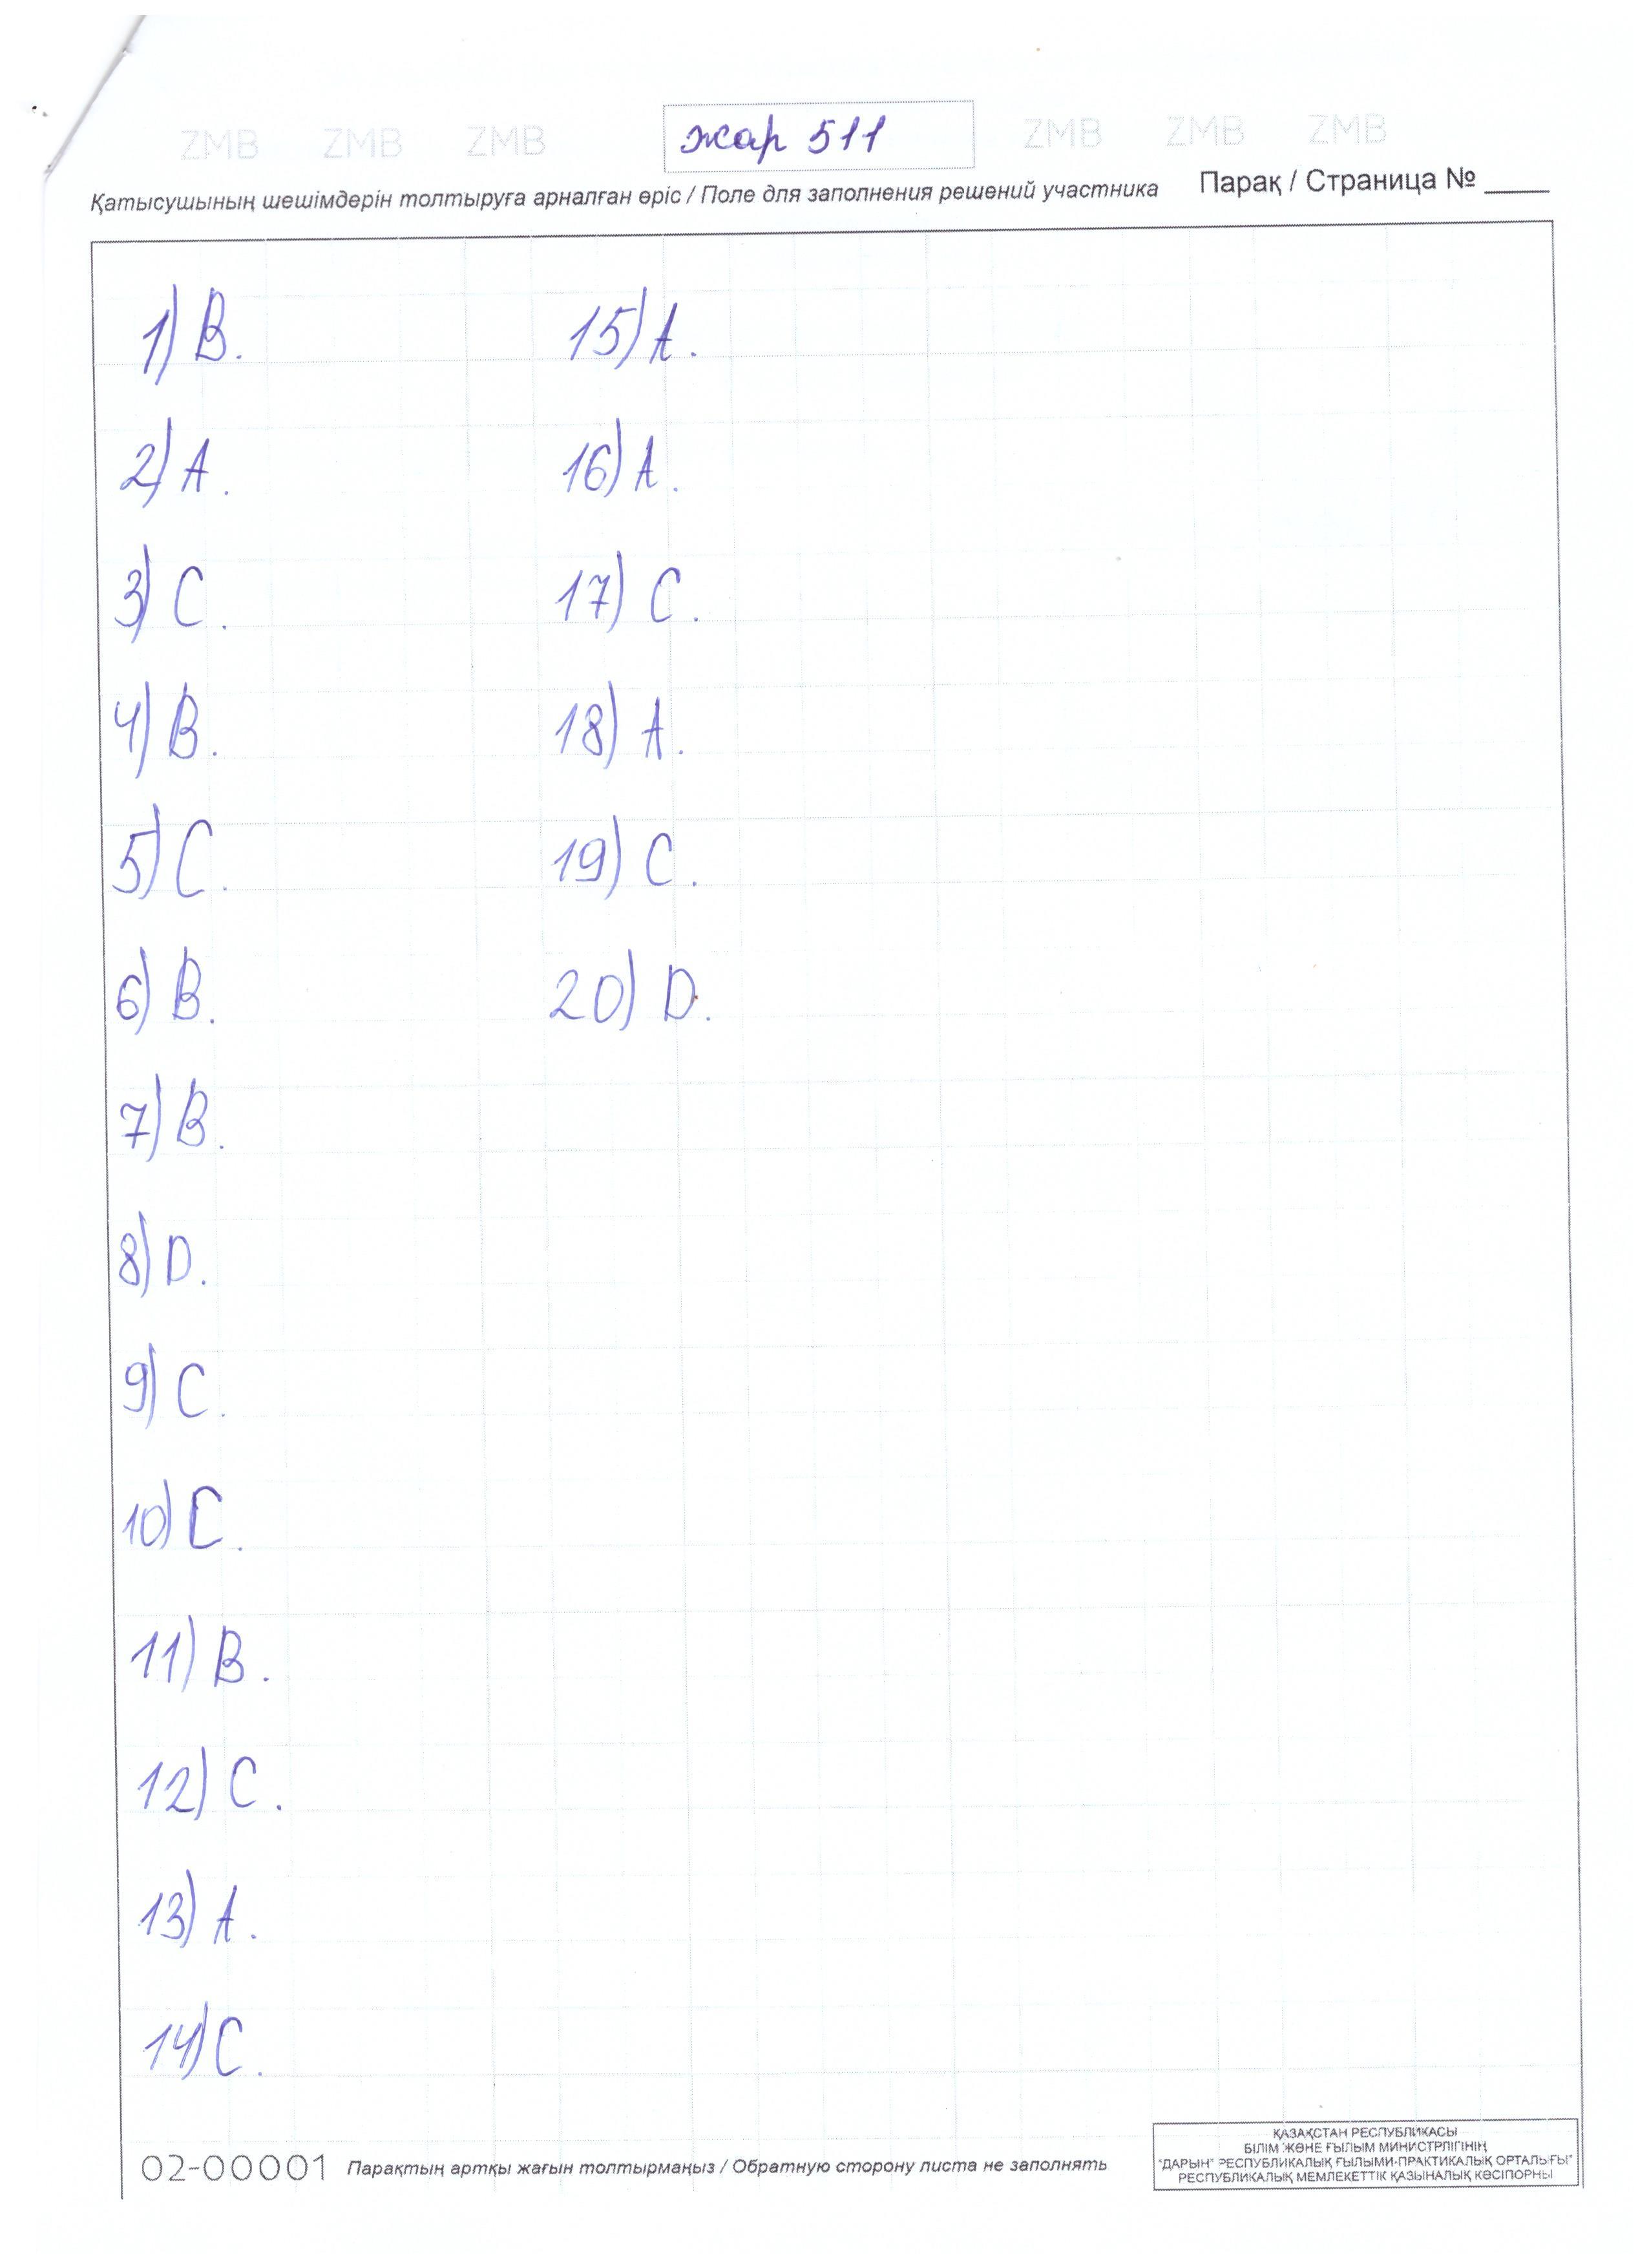 ZMB ZMB ZMB жар 511 ZMB ZMB ZMB
Қатысушының шешімдерін толтыруға арналған өріс / Поле для заполнения решений участника Парақ / Страница № ____
1) B.
2) A.
3) C.
4) B.
5) C.
6) B.
7) B.
8) D.
9) C.
10) C.
11) B.
12) C.
13) A.
14) C.
15) A.
16) A.
17) C.
18) A.
19) C.
20) D.
02-00001 Парақтың артқы жағын толтырмаңыз / Обратную сторону листа не заполнять
ҚАЗАҚСТАН РЕСПУБЛИКАСЫ
БІЛІМ ЖӘНЕ ҒЫЛЫМ МИНИСТРЛІГІНІҢ
"ДАРЫН" РЕСПУБЛИКАЛЫҚ ҒЫЛЫМИ-ПРАКТИКАЛЫҚ ОРТАЛЫҒЫ"
РЕСПУБЛИКАЛЫҚ МЕМЛЕКЕТТІК ҚАЗЫНАЛЫҚ КӘСІПОРНЫ